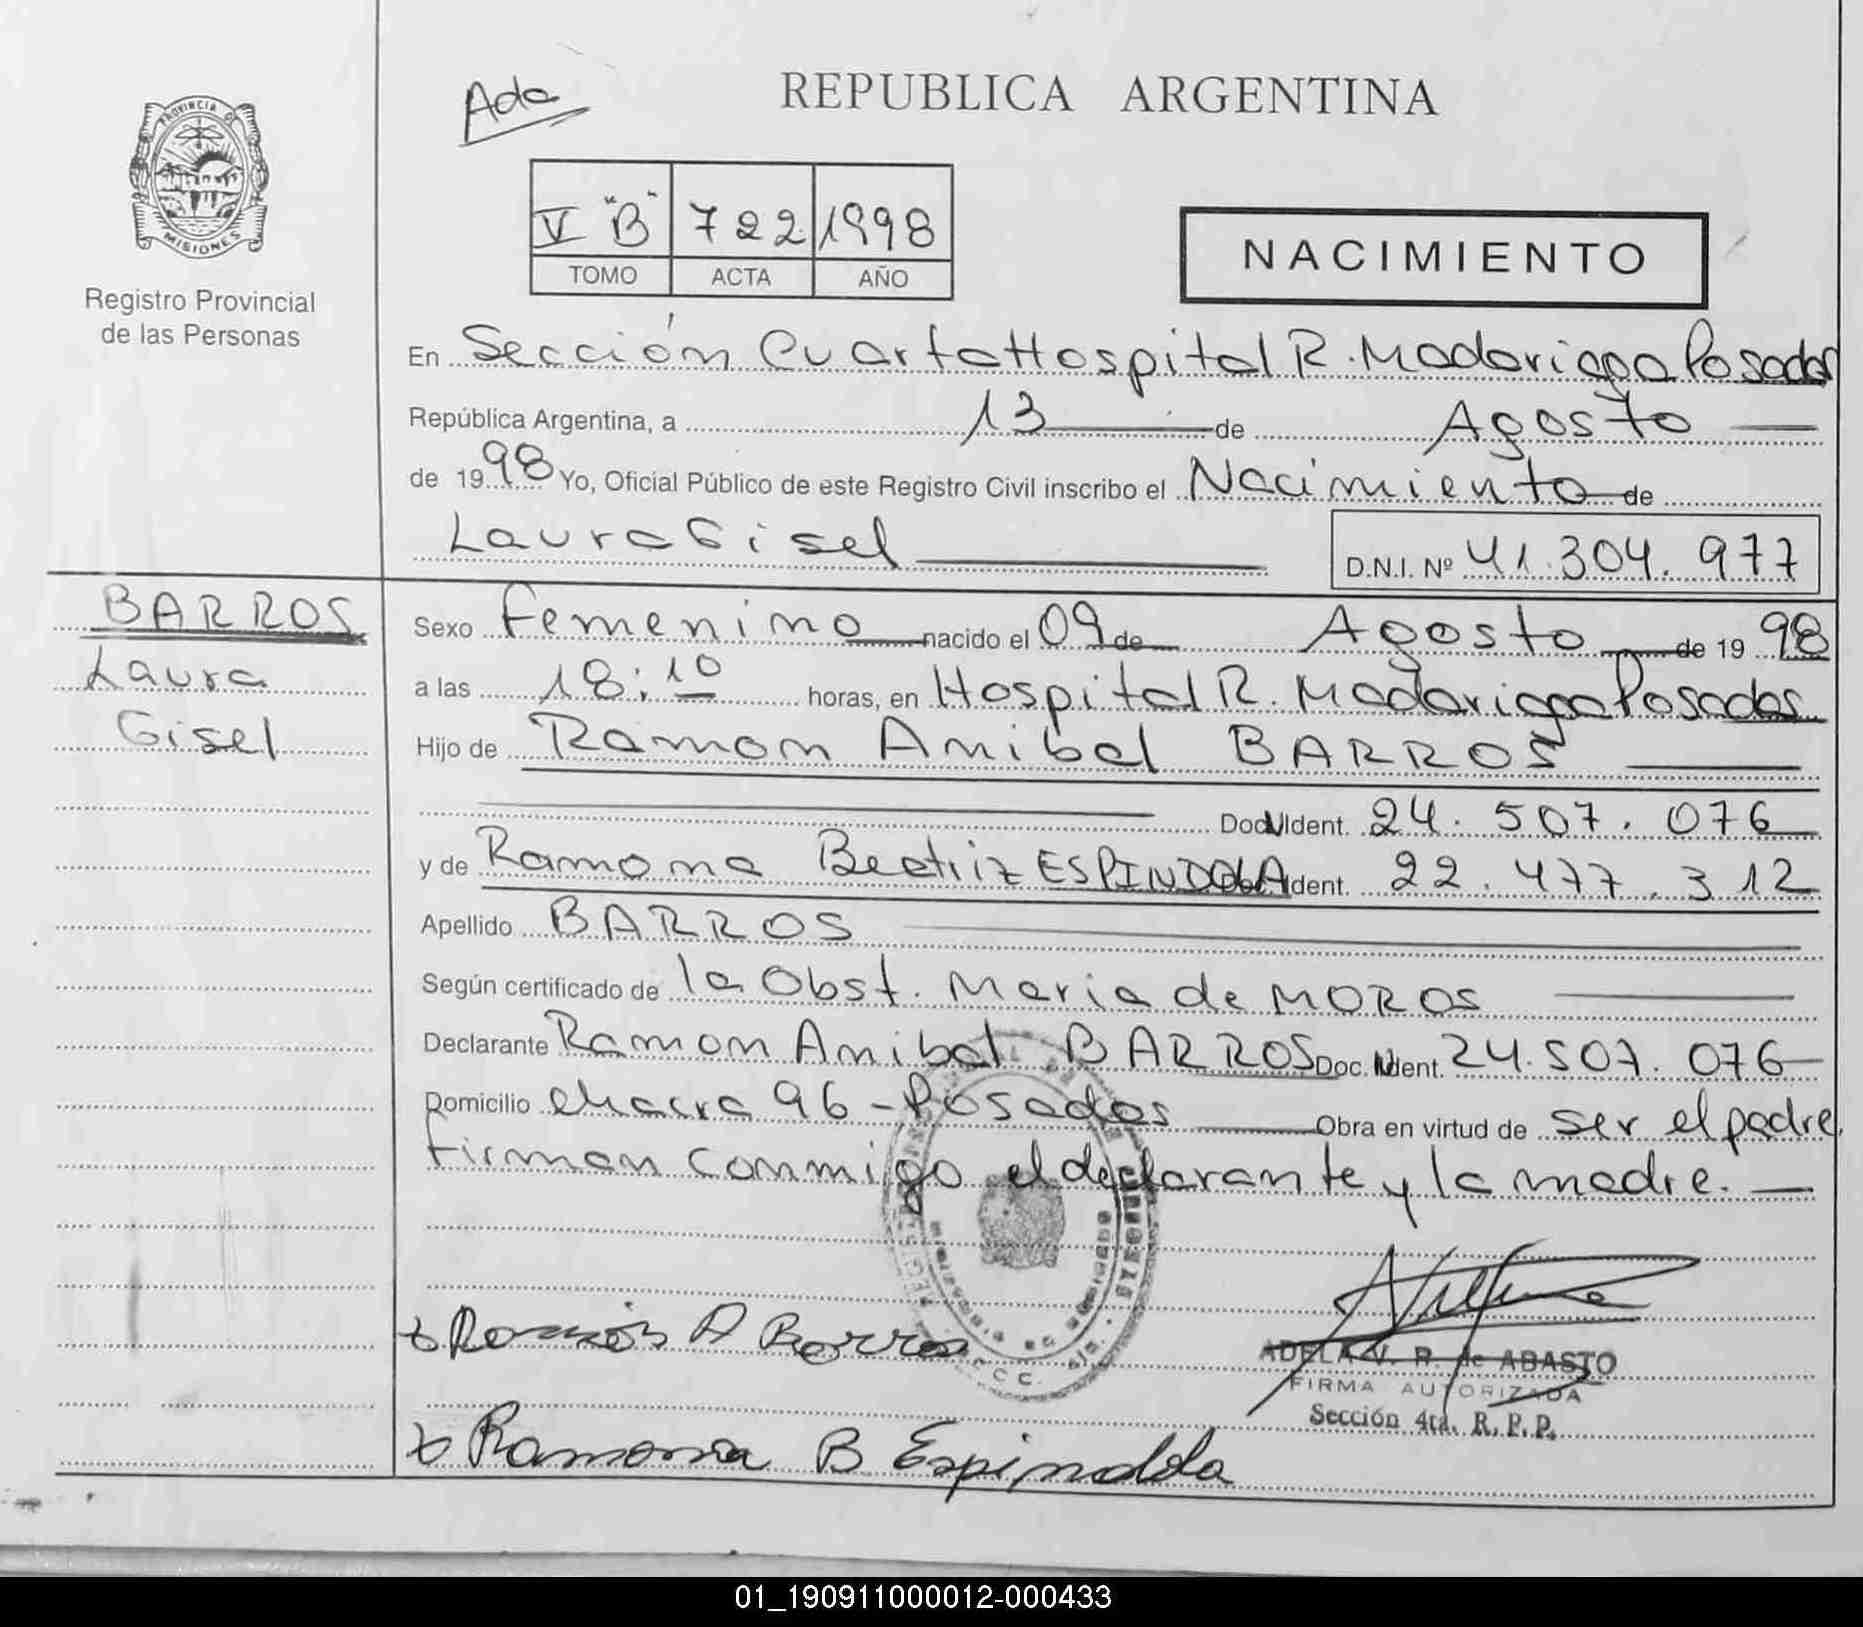 Ada
REPUBLICA ARGENTINA
PROVINCIA DE
MISIONES
Registro Provincial
de las Personas
V "B" 722 1998
TOMO ACTA AÑO
NACIMIENTO
En Sección Cuarta Hospital R. Madariaga Posadas
República Argentina, a 13 de Agosto
de 1998 Yo, Oficial Público de este Registro Civil inscribo el Nacimiento de
Laura Gisel
D.N.I. Nº 41.304.977
BARROS
Laura
Gisel
Sexo Femenino nacido el 09 de Agosto de 1998
a las 18:10 horas, en Hospital R. Madariaga Posadas
Hijo de Ramon Anibal BARROS
Doc. Ident. 24.507.076
y de Ramona Beatriz ESPINDOLA Ident. 22.477.312
Apellido BARROS
Según certificado de la Obst. Maria de MOROS
Declarante Ramon Anibal BARROS Doc. Ident. 24.507.076
Domicilio Chacra 96 - Posadas Obra en virtud de ser el padre.
Firman conmigo el declarante y la madre.
Ramón A Barros
ADELA V. R. de ABASTO
FIRMA AUTORIZADA
Sección 4ta. R. P. P.
Ramona B Espindola
01_190911000012-000433